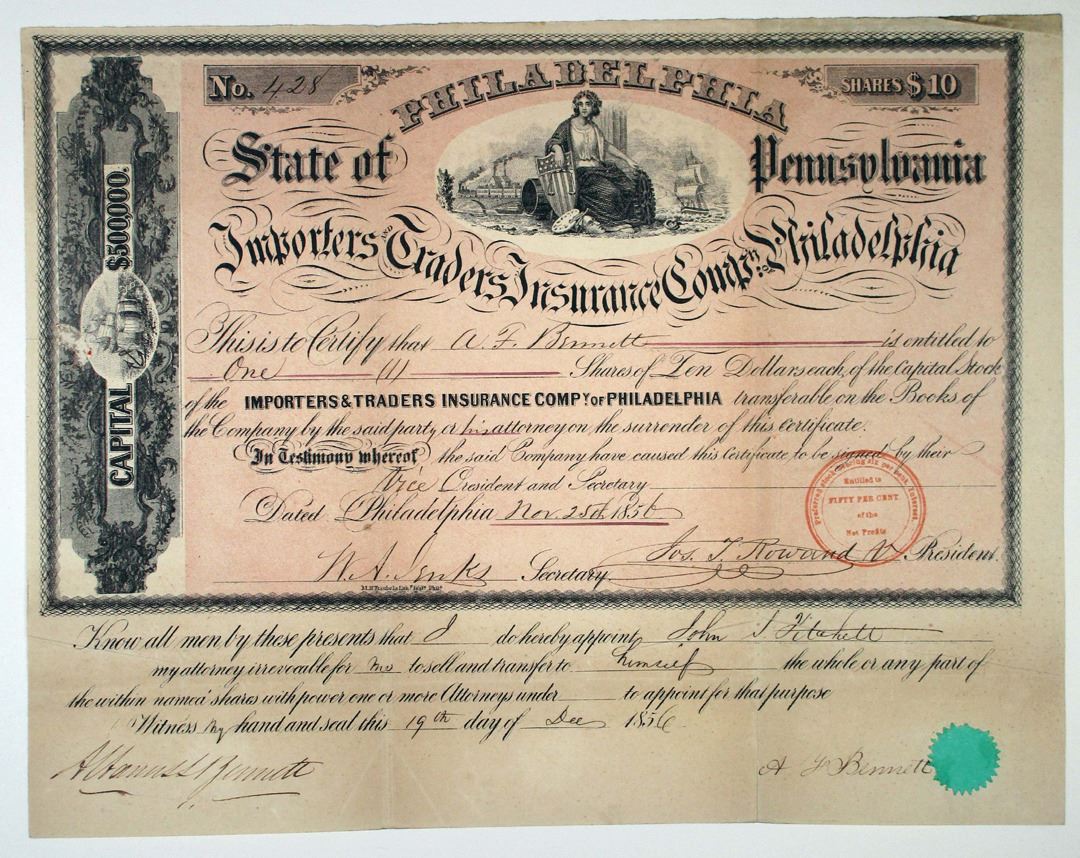 No. 428
PHILADELPHIA
SHARES $10
State of Pennsylvania
Importers AND Traders Insurance Compy. of Philadelphia
CAPITAL $500,000.
This is to Certify that A. F. Bennett is entitled to
One (1) Shares of Ten Dollars each, of the Capital Stock
of the IMPORTERS & TRADERS INSURANCE COMPY OF PHILADELPHIA transferable on the Books of
the Company by the said party, or his attorney on the surrender of this certificate.
In Testimony whereof the said Company have caused this Certificate to be signed by their
Vice President and Secretary
Dated Philadelphia Nov. 25th 1856
Preferred stock bearing six per cent. Interest.
Entitled to
FIFTY PER CENT.
of the
Net Profits
W. A. Jenks Secretary. Jos. T. Rowand V. President.
Know all men by these presents that I do hereby appoint John S Fitchett
my attorney irrevocable for me to sell and transfer to himself the whole or any part of
the within named shares with power one or more Attorneys under to appoint for that purpose
Witness my hand and seal this 19th day of Dec 1856
Bennett
A F Bennett